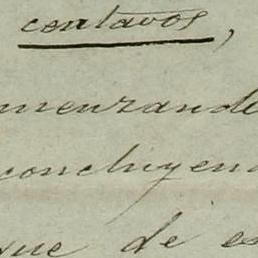 centavos,
menzando
concluyen
que de es